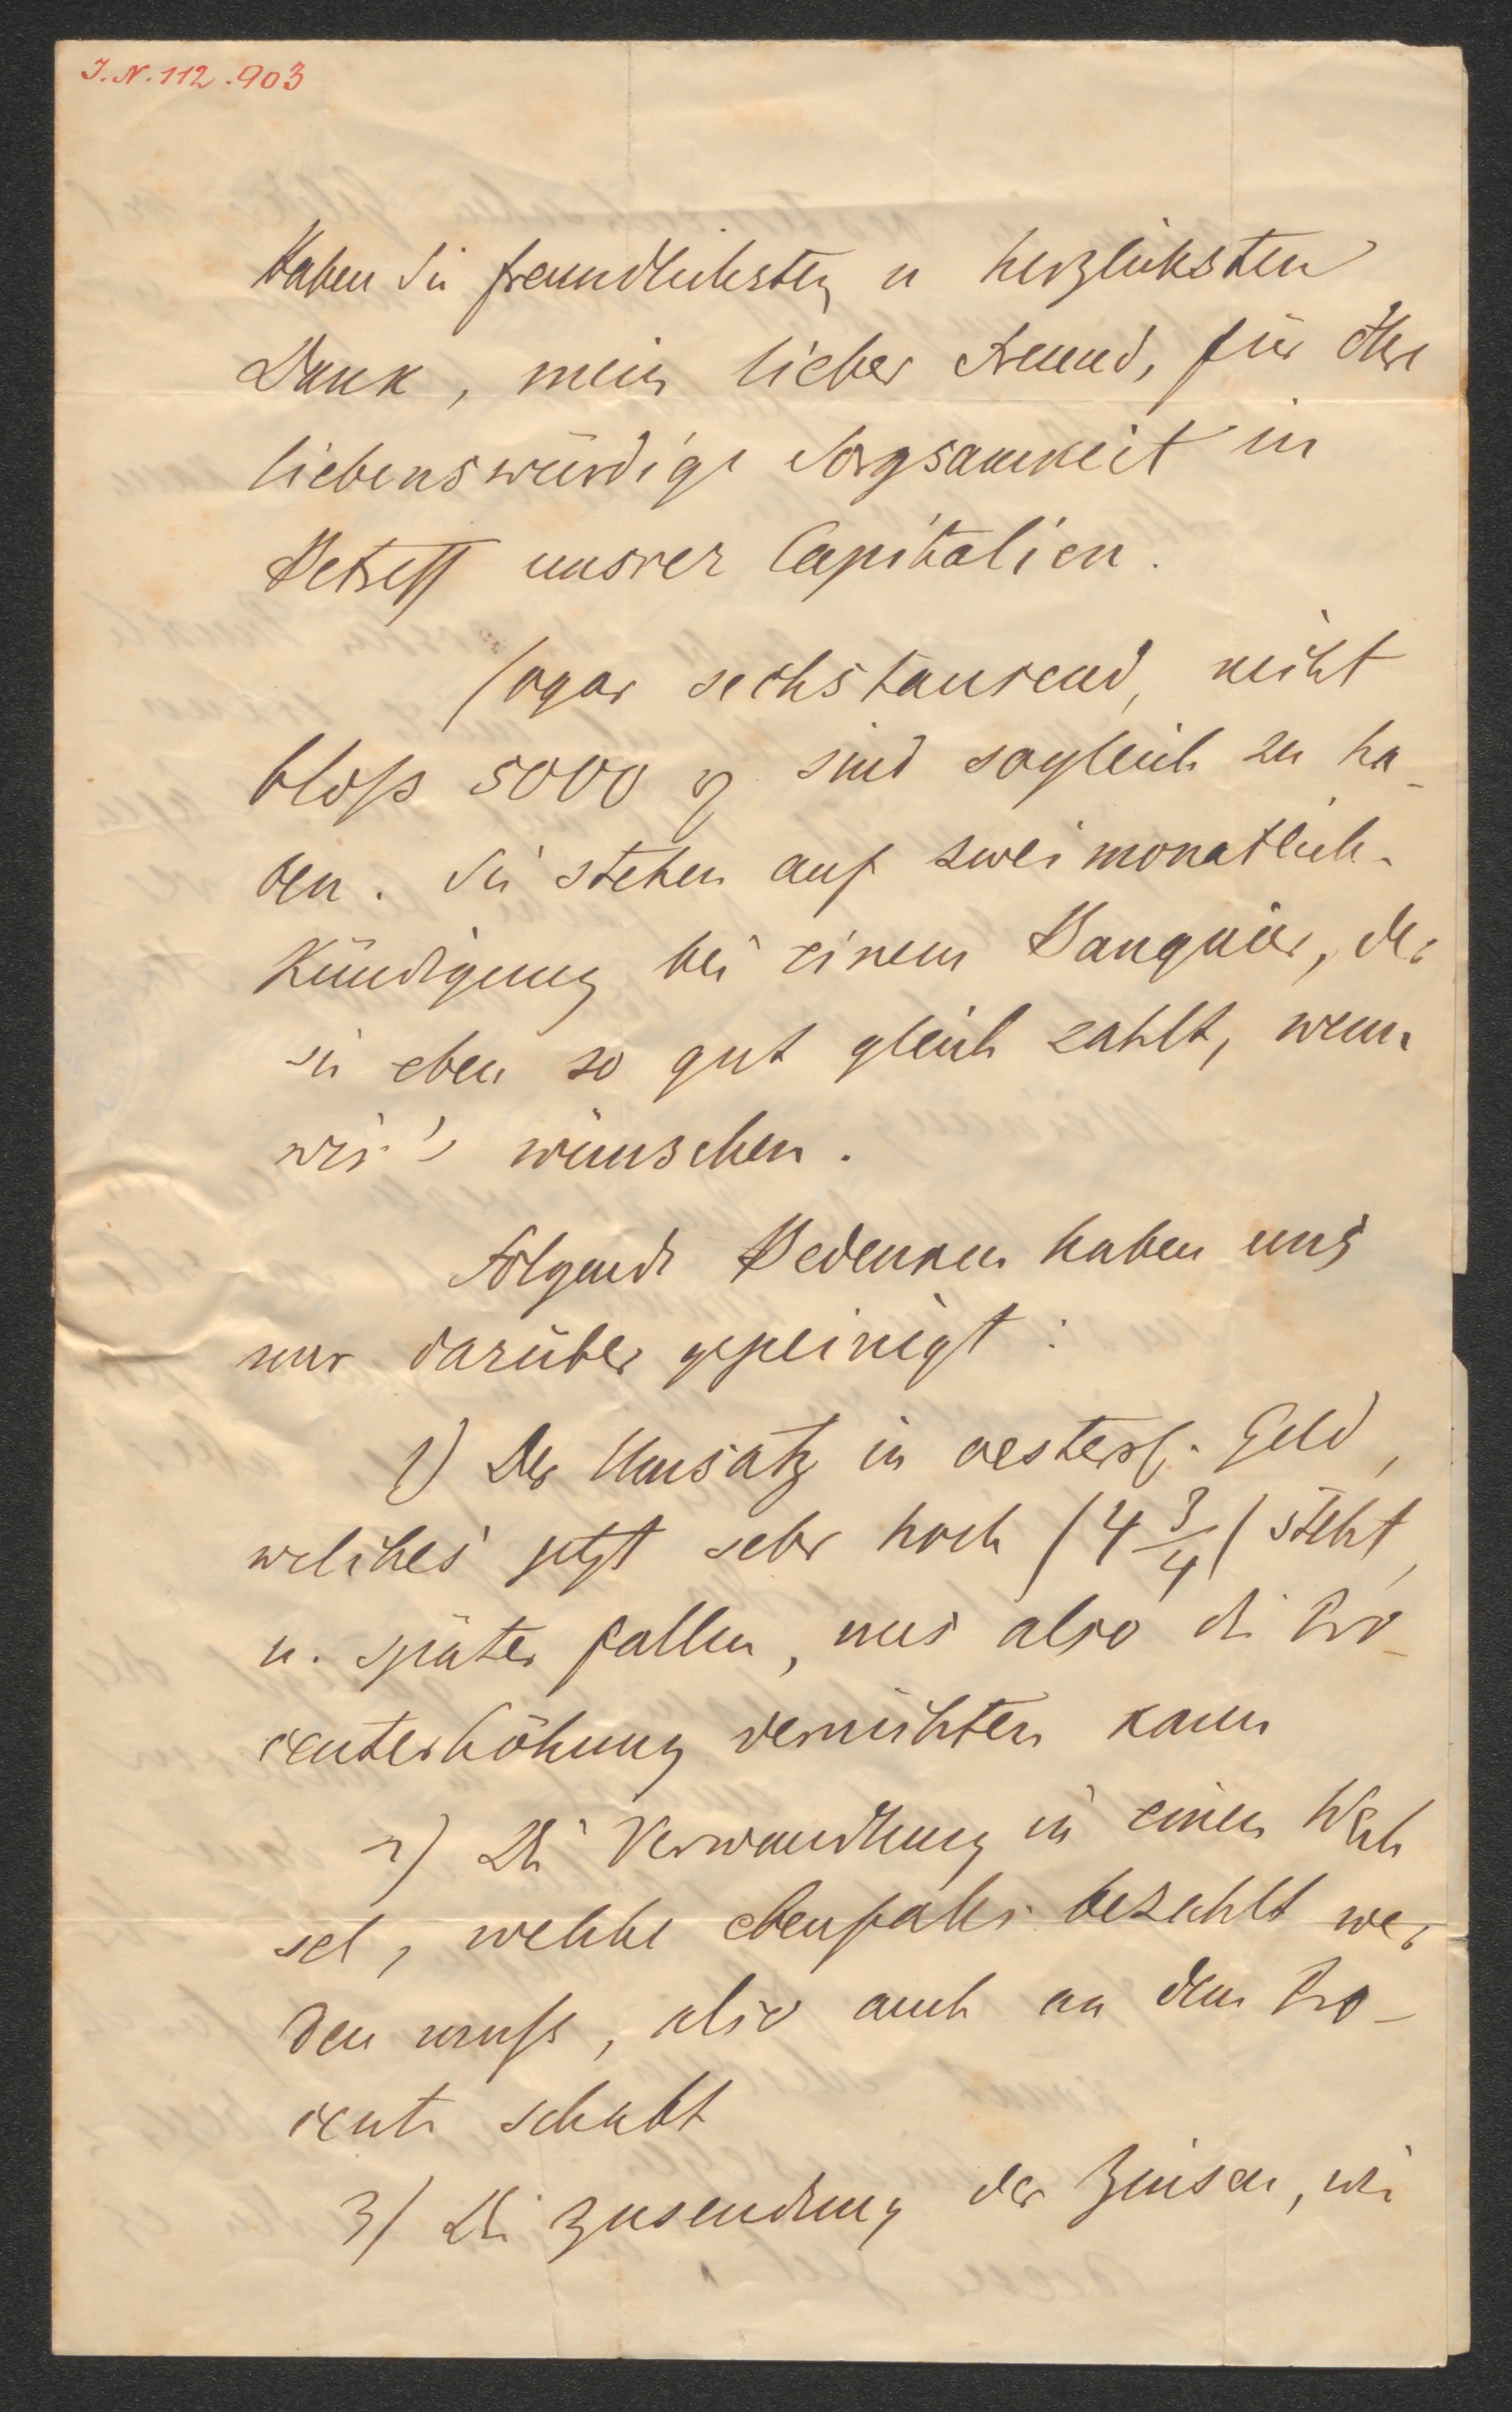 I. N. 112.903
Haben Sie freundlichsten u herzlichsten
Dank, mein lieber Freund, für Ihre
liebenswürdige Sorgsamkeit in
Betreff unsrer Capitalien.
Sogar sechstausend, nicht
bloß 5000 sind sogleich zu ha-
ben. Sie stehen auf zweimonatlich.
Kündigung bei einem Banquier, der
sie eben so gut gleich zahlt, wenn
wir's wünschen.
Folgende Bedenken haben uns
nur darüber gepeinigt:
1) Der Umsatz in oesterr. Geld,
welches jetzt sehr hoch (4 3/4) steht,
u. später fallen, uns also die Pro-
centerhöhung vernichten kann
2) Die Verwandlung in einen Wech
sel, welche ebenfalls bezahlt wer
den muß, also auch an dem Pro-
cente schabt
3) Die Zusendung der Zinsen, wie